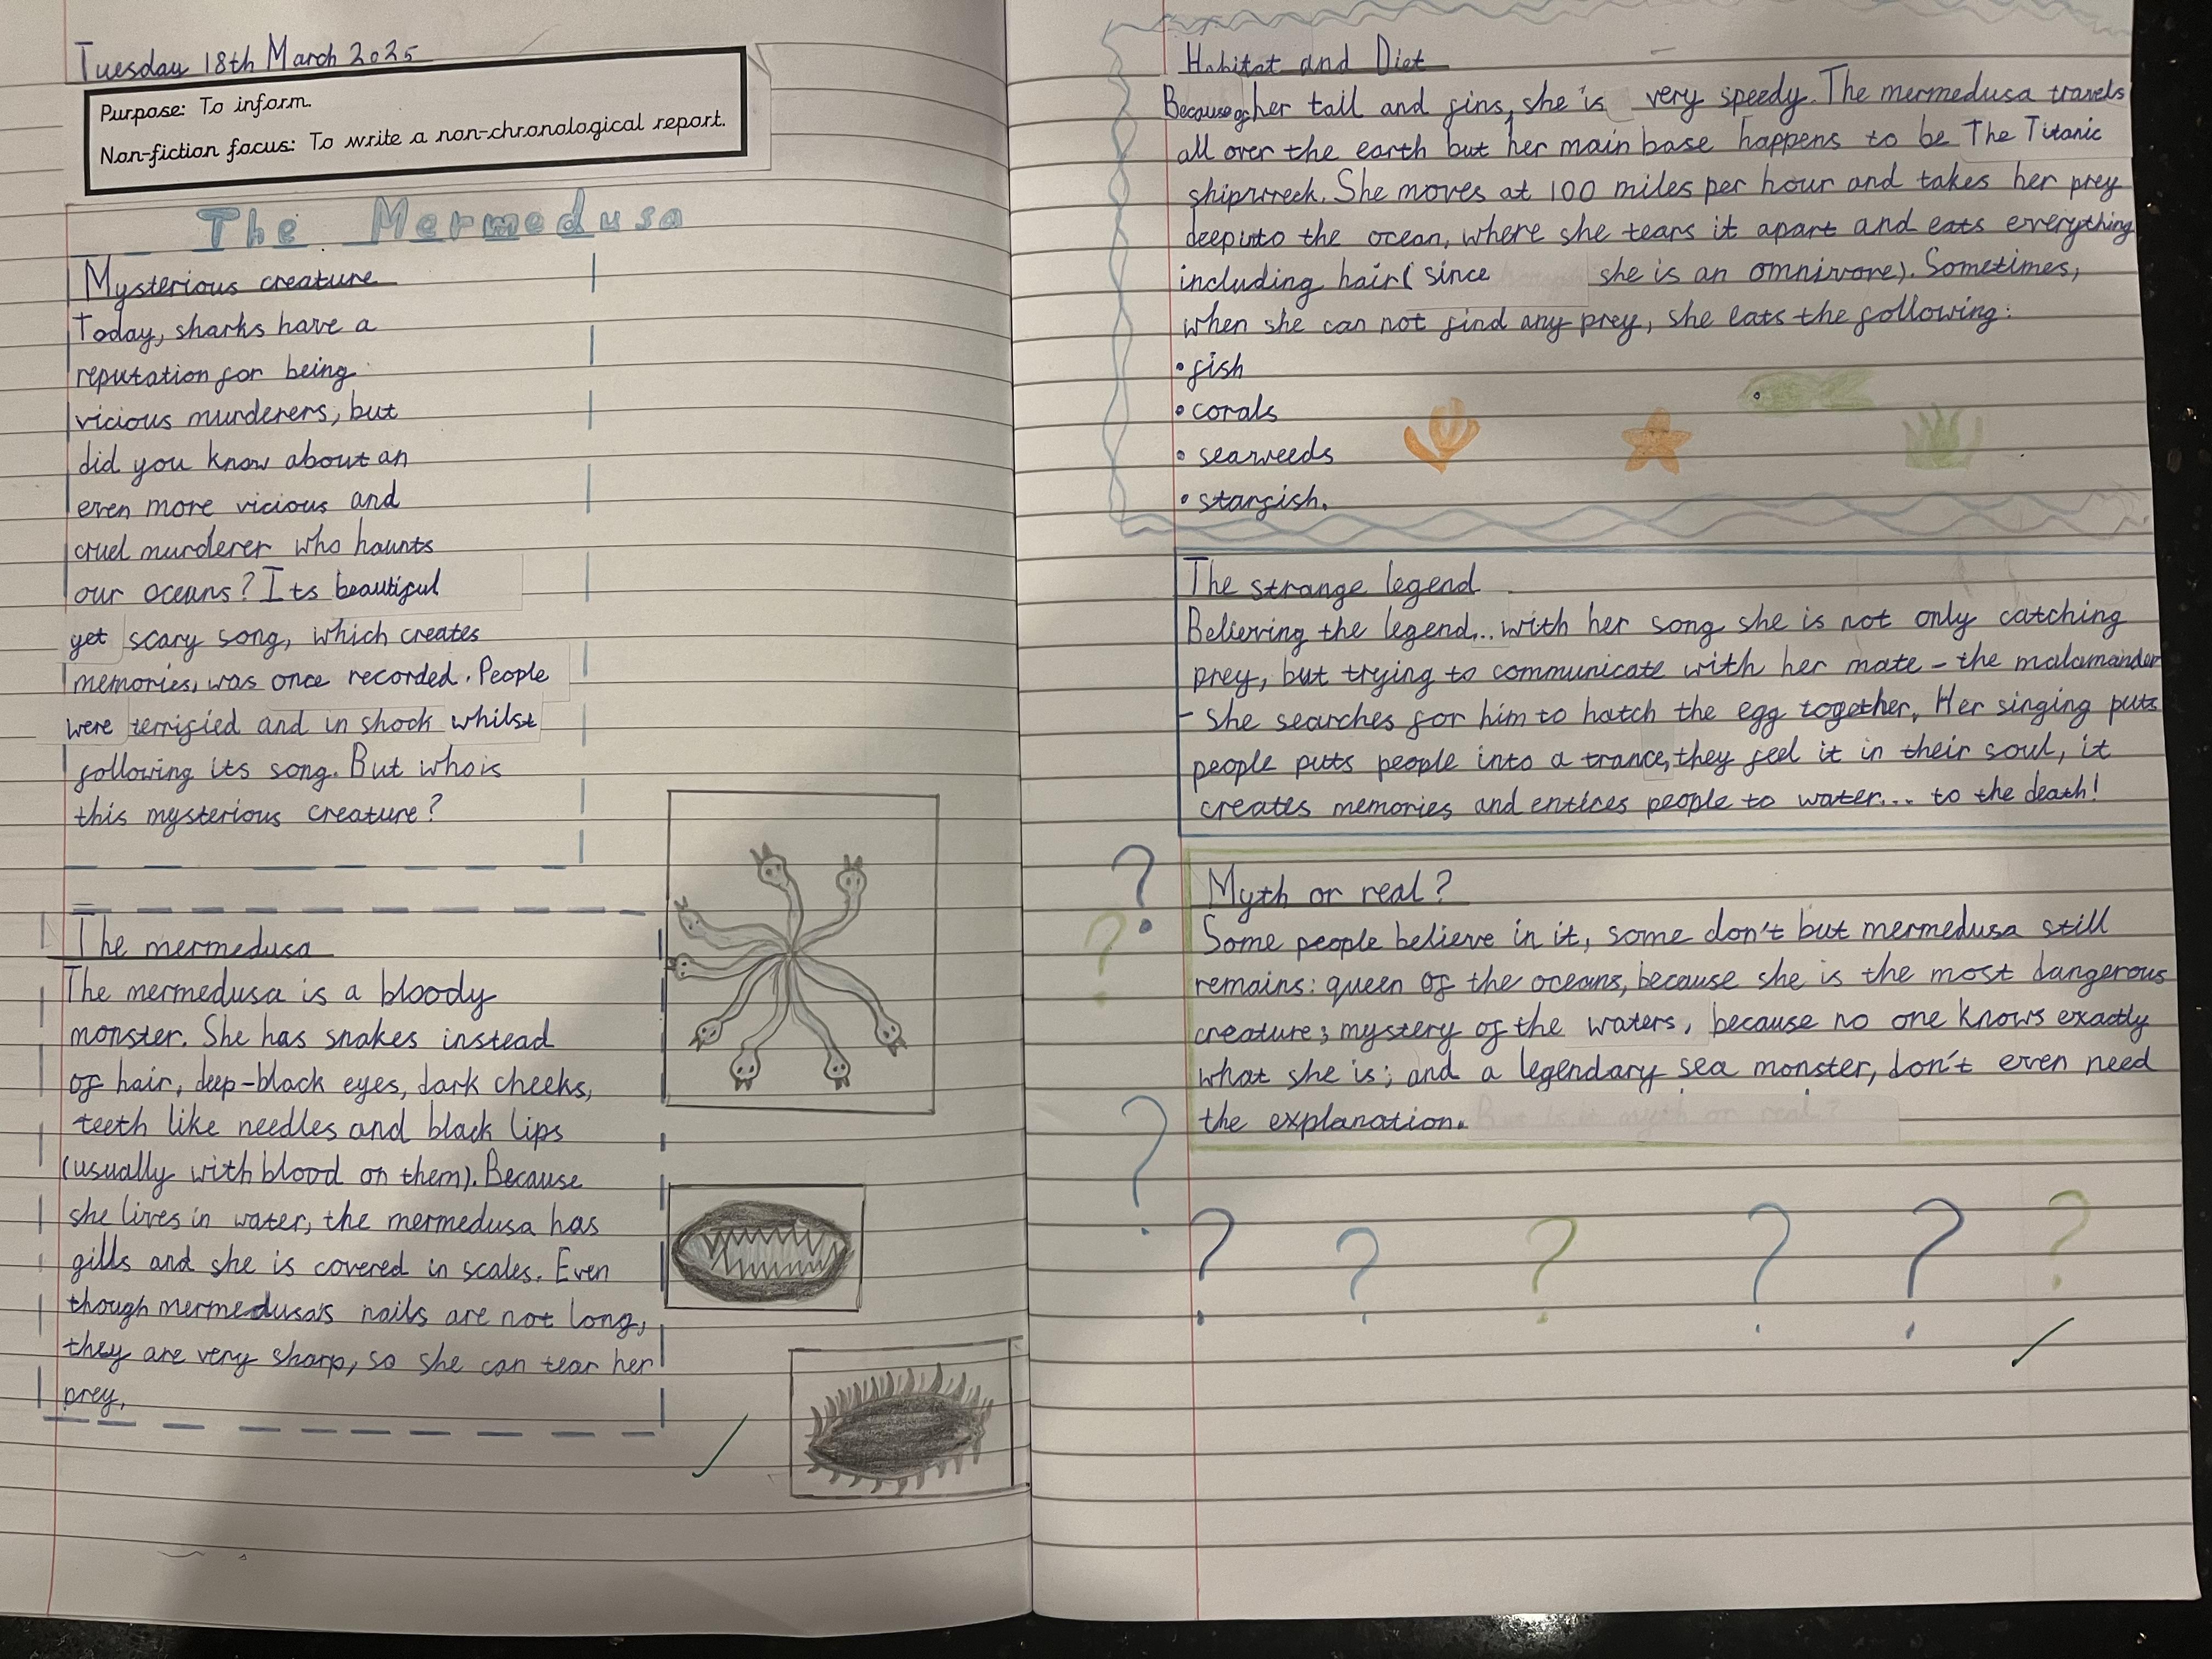 Tuesday 18th March 2025
Purpose: To inform.
Non-fiction focus: To write a non-chronological report.
The Mermedusa
Mysterious creature
Today, sharks have a
reputation for being
vicious murderers, but
did you know about an
even more vicious and
cruel murderer who haunts
our oceans? Its beautiful
yet scary song, which creates
memories, was once recorded. People
were terrified and in shock whilst
following its song. But who is
this mysterious creature?
The mermedusa
The mermedusa is a bloody
monster. She has snakes instead
of hair, deep-black eyes, dark cheeks,
teeth like needles and black lips
(usually with blood on them). Because
she lives in water, the mermedusa has
gills and she is covered in scales. Even
though mermedusa's nails are not long,
they are very sharp, so she can tear her
prey.
Habitat and Diet
Because of her tail and fins, she is very speedy. The mermedusa travels
all over the earth but her main base happens to be The Titanic
shipwreck. She moves at 100 miles per hour and takes her prey
deep into the ocean, where she tears it apart and eats everything
including hair (since she is an omnivore). Sometimes,
when she can not find any prey, she eats the following:
• fish
• corals
• seaweeds
• starfish.
The strange legend
Believing the legend... with her song she is not only catching
prey, but trying to communicate with her mate - the malamander
- She searches for him to hatch the egg together. Her singing puts
people puts people into a trance, they feel it in their soul, it
creates memories and entices people to water... to the death!
Myth or real?
Some people believe in it, some don't but mermedusa still
remains: queen of the oceans, because she is the most dangerous
creature; mystery of the waters, because no one knows exactly
what she is; and a legendary sea monster, don't even need
the explanation. But is it myth or real?